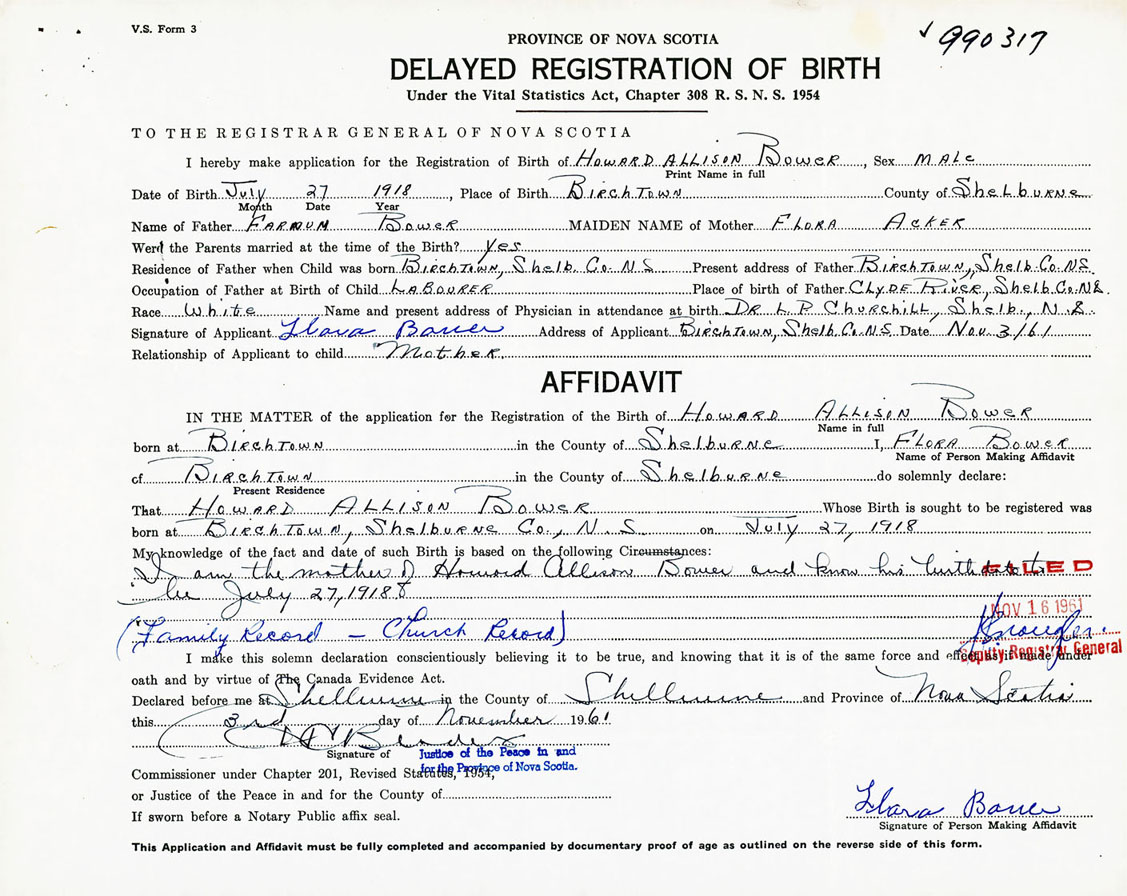 V.S. Form 3
990317
PROVINCE OF NOVA SCOTIA
DELAYED REGISTRATION OF BIRTH
Under the Vital Statistics Act, Chapter 308 R. S. N. S. 1954
TO THE REGISTRAR GENERAL OF NOVA SCOTIA
I hereby make application for the Registration of Birth of HOWARD ALLISON BOWER, Sex MALE
Print Name in full
Date of Birth July 27 1918, Place of Birth BIRCHTOWN County of Shelburne
Month Date Year
Name of Father FARMUM BOWER MAIDEN NAME of Mother FLORA ACKER
Were the Parents married at the time of the Birth? Yes
Residence of Father when Child was born BIRCHTOWN, Shelb. Co. N.S. Present address of Father BIRCHTOWN, Shelb. Co. N.S.
Occupation of Father at Birth of Child LABOURER Place of birth of Father CLYDE RIVER, Shelb Co. N.S.
Race White Name and present address of Physician in attendance at birth DR L. P. CHURCHILL, Shelb., N.S.
Signature of Applicant Flora Bower Address of Applicant BIRCHTOWN, Shelb. Co. N.S. Date Nov. 3/61
Relationship of Applicant to child Mother
AFFIDAVIT
IN THE MATTER of the application for the Registration of the Birth of HOWARD ALLISON BOWER
Name in full
born at BIRCHTOWN in the County of Shelburne I, FLORA BOWER
Name of Person Making Affidavit
of BIRCHTOWN in the County of Shelburne do solemnly declare:
Present Residence
That HOWARD ALLISON BOWER Whose Birth is sought to be registered was
born at BIRCHTOWN, Shelburne Co., N.S. on July 27, 1918
My knowledge of the fact and date of such Birth is based on the following Circumstances:
I am the mother of Howard Allison Bower and know his birth date to
FILED
be July 27, 1918
NOV 16 1961
(Family Record - Church Record)
Deputy Registrar General
I make this solemn declaration conscientiously believing it to be true, and knowing that it is of the same force and effect as if made under
oath and by virtue of The Canada Evidence Act.
Declared before me at Shelburne in the County of Shelburne and Province of Nova Scotia
this 3rd day of November 1961
Signature of
Justice of the Peace in and
for the Province of Nova Scotia.
Commissioner under Chapter 201, Revised Statutes, 1954,
or Justice of the Peace in and for the County of
If sworn before a Notary Public affix seal.
Flora Bower
Signature of Person Making Affidavit
This Application and Affidavit must be fully completed and accompanied by documentary proof of age as outlined on the reverse side of this form.